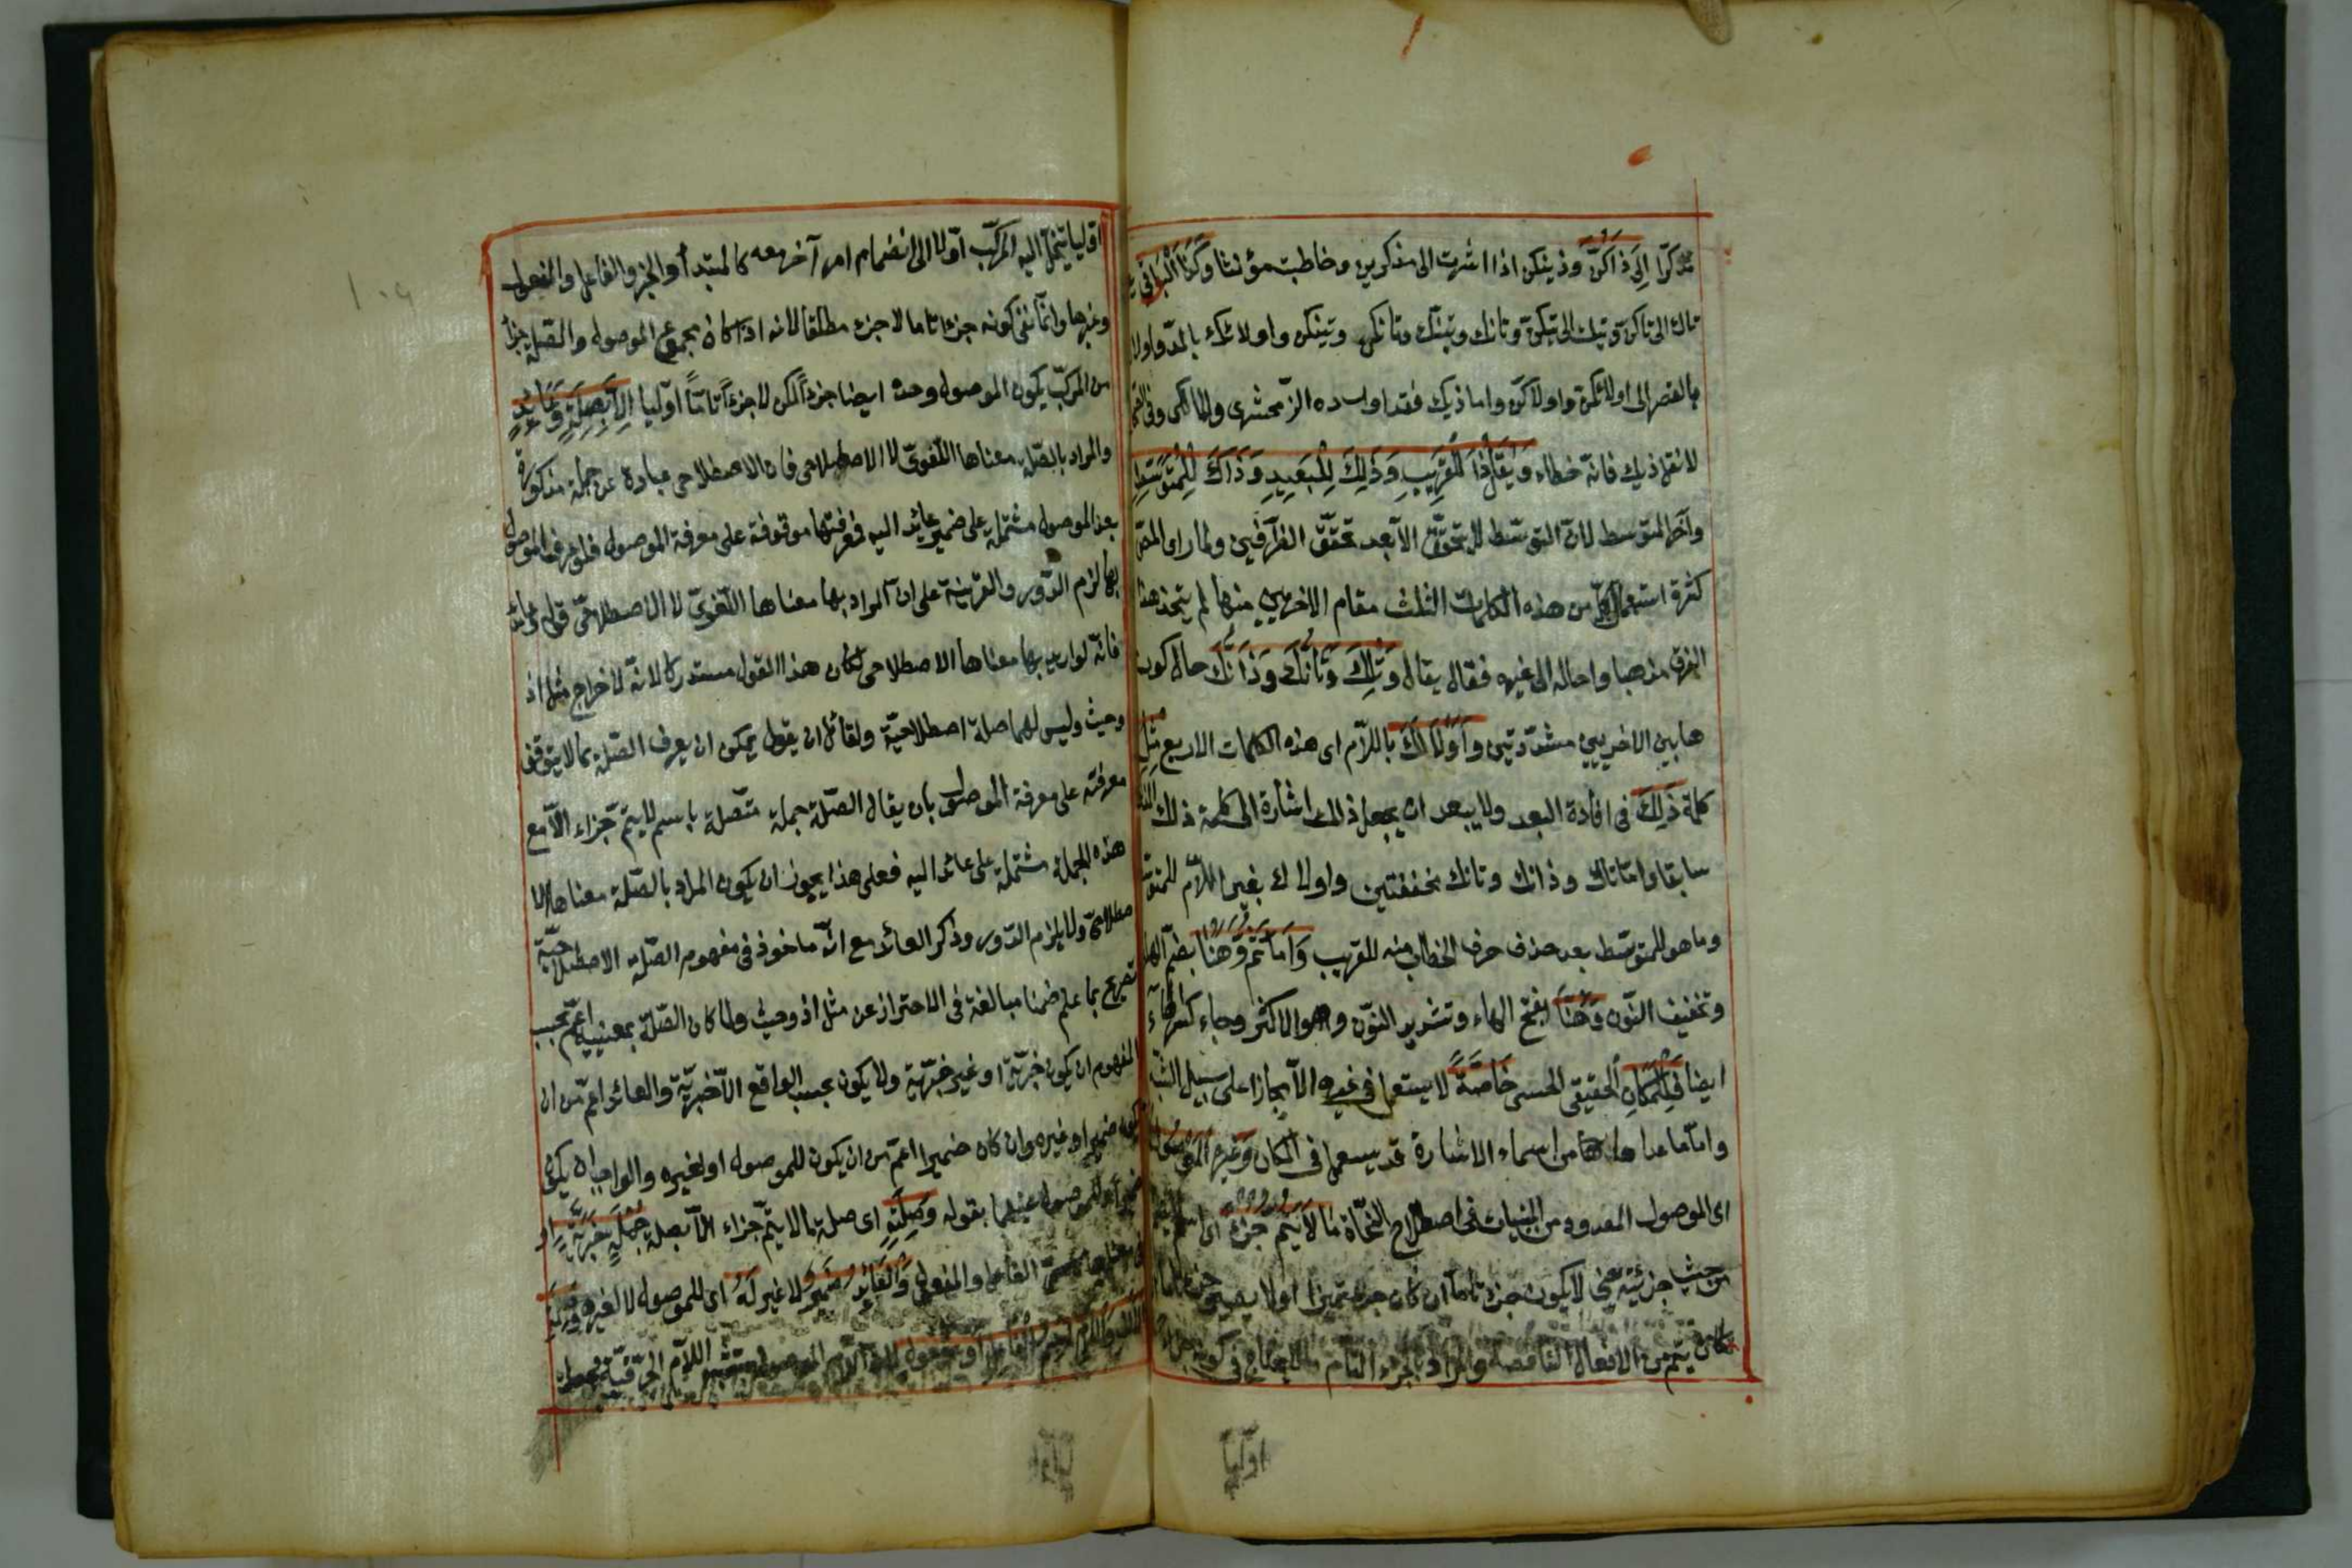 مذكرا الى ذاكن وذينكن اذا اشرت الى مذكرين وخاطبت مؤنثا وكذا البواقى
تاك الى تاكن وتيك الى تيكن وتانك وتينك وتانكن وتينكن واولائك بالمد واولاك
بالقصر الى اولائكن واولاكن واما ذيك فقد اورده الزمخشرى والمالكى وفى
لا تقل ذيك فانه خطاء ويقال ذا للقريب وذلك للبعيد وذاك للمتوسط
واخر المتوسط لان التوسط لا يتحقق الا بعد تحقق الطرفين ولما راى المص
كثرة استعمال كل من هذه الكلمات الثلث مقام الاخريين منها لم يتخذ هذا
الفرق مذهبا واحاله الى غيره فقال يقال وتلك وتانك وذانك حال كون
هابين الاخريين مشددتين واولالك باللام اى هذه الكلمات الاربع مثل
كلمة ذلك فى افادة البعد ولا يبعد ان يجعل ذلك اشارة الى كلمة ذلك
سابقا واما تاك وذانك وتانك مخففتين واولاك بغير اللام للمتوسط
وما هو للمتوسط بعد حذف حرف الخطاب منه للقريب واما ثم وهنا بضم الهاء
وتخفيف النون وهنا بفتح الهاء وتشديد النون وهو الاكثر وجاء كسر الهاء
ايضا فللمكان الحقيقى الحسى خاصة لا يستعمل فى غيره الا مجازا على سبيل التشبيه
واما ما عداها من اسماء الاشارة قد يستعمل فى المكان وغيره الموصول
اى الموصول المعدود من المبنيات فى اصطلاح النحاة ما لا يتم جزء اى اسم لا يتم
من حيث جزئيته يعنى لا يكون جزء تاما ان كان جزء تميزا او لا يصير جزء تاما
كان يتم من الافعال الناقصة والمراد بالجزء التام ما لا يحتاج فى كونه جزء
اوليا
اوليا ينحل اليه المركب اولا الى انضمام امر آخر معه كالمبتدأ والخبر والفاعل والمفعول
وغيرها وانما نفى كونه جزءا تاما لا جزء مطلقا لانه اذا كان مجموع الموصول والصلة جزأ
من المركب يكون الموصول وحده ايضا جزءا لكن لا جزءا تاما اوليا الا بصلة وعائد
والمراد بالصلة معناها اللغوى لا الاصطلاحى فان الاصطلاحى عبارة عن جملة مذكورة
بعد الموصول مشتملة على ضمير عائد اليه فمعرفتها موقوفة على معرفة الموصول فلو عرف الموصول
بها لزم الدور والقرينة على ان المراد بها معناها اللغوى لا الاصطلاحى قوله وعائد
فانه لو اريد بها معناها الاصطلاحى لكان هذا القول مستدركا لانه لاخراج مثل اذ
وحيث وليس لهما صلة اصطلاحية ولقائل ان يقول يمكن ان يعرف الصلة بما لا يتوقف
معرفته على معرفة الموصول بان يقال الصلة جملة متصلة باسم لا يتم جزاء الا مع
هذه الجملة مشتملة على عائد اليه فعلى هذا يجوز ان يكون المراد بالصلة معناها الا
صطلاحى ولا يلزم الدور وذكر العائد مع انه ماخوذ فى مفهوم الصلة الاصطلاحية
تصريح بما علم ضمنا مبالغة فى الاحتراز عن مثل اذ وحيث ولما كان الصلة بمعنييه اعم بحسب
المفهوم ان يكون خبرية او غير خبرية ولا يكون بحسب الواقع الا خبرية والعائد اعم من ان
يكون ضميرا وغيره وان كان ضميرا اعم من ان يكون للموصول او لغيره والواجب ان يكون
ضميرا للموصول عينهما بقوله وصلته اى صلة ما لا يتم جزاء الا بصلة جملة خبرية او
معناها الفاعل والمفعول والعائد ضمير لا غير له اى للموصول لا لغيره وصلة
الالف واللام اسم الفاعل او مفعول الموصول اللام الحرفية